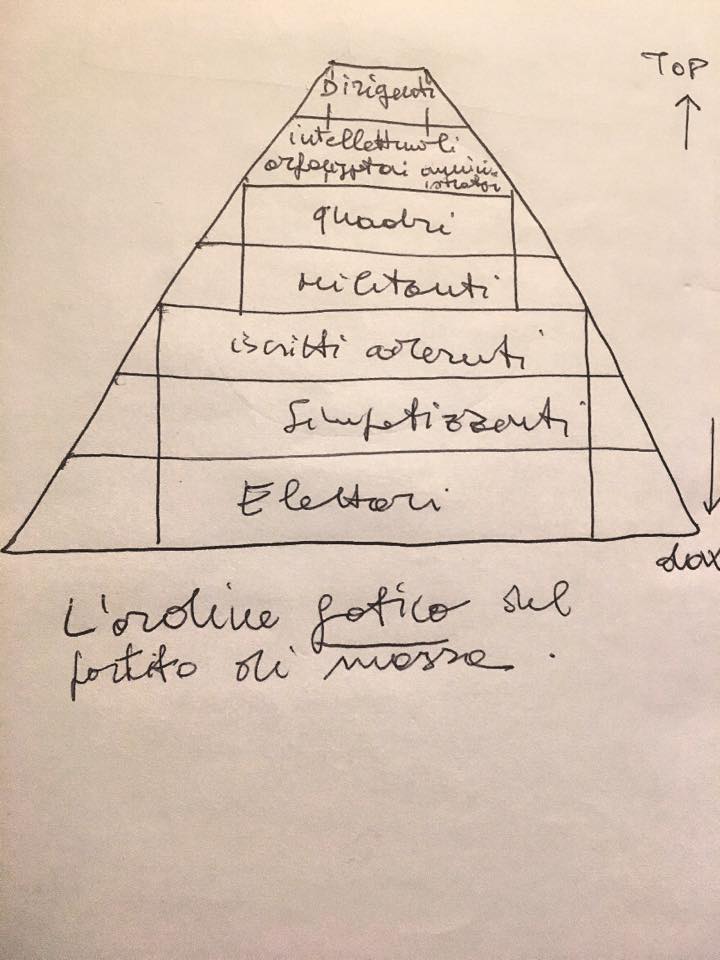 TOP
Dirigenti
intellettuali
organizzatori ammini-
istratori
quadri
militanti
iscritti aderenti
Simpatizzanti
Elettori
L'ordine gotico del
partito di massa.